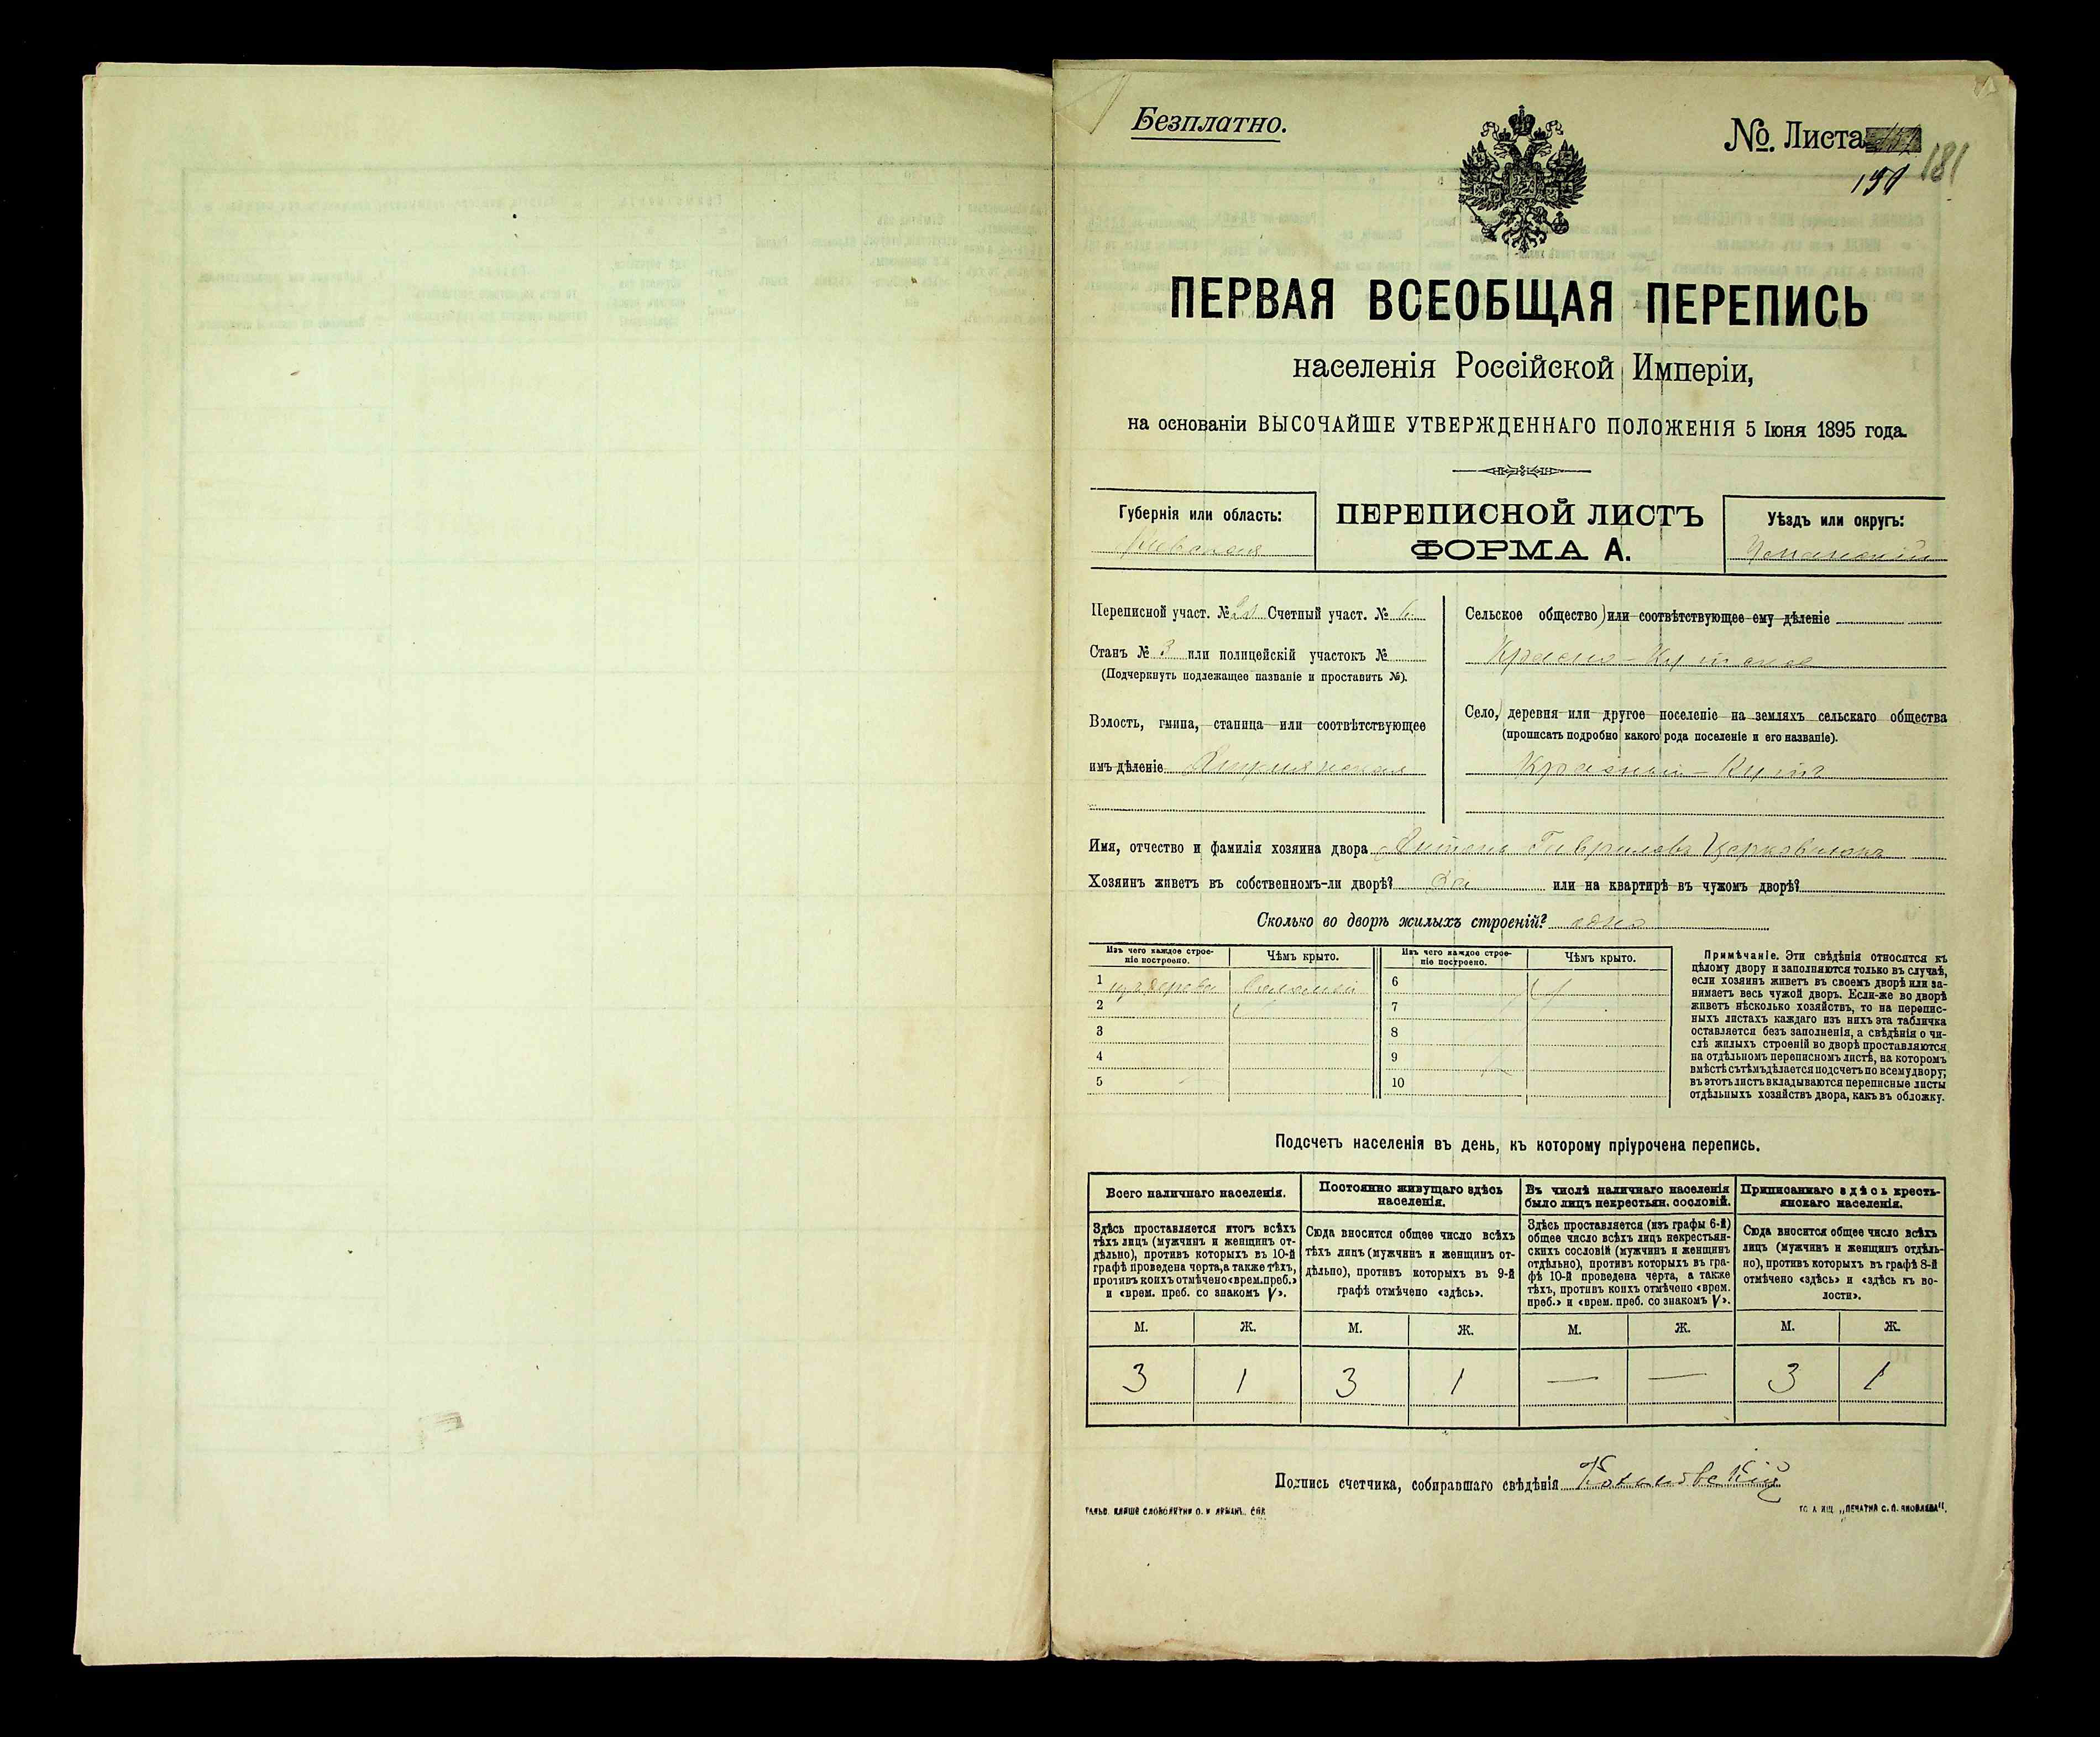 Безплатно.
№. Листа
191 181
ПЕРВАЯ ВСЕОБЩАЯ ПЕРЕПИСЬ
населенія Россійской Имперіи,
на основаніи ВЫСОЧАЙШЕ УТВЕРЖДЕННАГО ПОЛОЖЕНІЯ 5 Іюня 1895 года.
Губернія или область:
Кіевская
ПЕРЕПИСНОЙ ЛИСТЪ
ФОРМА А.
Уѣздъ или округъ:
Уманскій
Переписной участ. № Счетный участ. № 6
Станъ № 3 или полицейскій участокъ №
(Подчеркнуть подлежащее названіе и проставить №).
Волость, гмина, станица или соотвѣтствующее
имъ дѣленіе
Сельское общество или соотвѣтствующее ему дѣленіе
Красно-Кутское
Село, деревня или другое поселеніе на земляхъ сельскаго общества
(прописать подробно какого рода поселеніе и его названіе).
Красный-Кутъ
Имя, отчество и фамилія хозяина двора Антонъ Гавриловъ Церковнюкъ
Хозяинъ живетъ въ собственномъ-ли дворѣ? да или на квартирѣ въ чужомъ дворѣ?
Сколько во дворѣ жилыхъ строеній? одно
Изъ чего каждое строе-
ніе построено.
Чѣмъ крыто.
Изъ чего каждое строе-
ніе построено.
Чѣмъ крыто.
1 изъ дерева соломой 6
2 7
3 8
4 9
5 10
Примѣчаніе. Эти свѣдѣнія относятся къ
цѣлому двору и заполняются только въ случаѣ,
если хозяинъ живетъ въ своемъ дворѣ или за-
нимаетъ весь чужой дворъ. Если-же во дворѣ
живетъ нѣсколько хозяйствъ, то на перепис-
ныхъ листахъ каждаго изъ нихъ эта табличка
оставляется безъ заполненія, а свѣдѣнія о чи-
слѣ жилыхъ строеній во дворѣ проставляются
на отдѣльномъ переписномъ листѣ, на которомъ
вмѣстѣ съ тѣмъ дѣлается подсчетъ по всему двору;
въ этотъ листъ вкладываются переписные листы
отдѣльныхъ хозяйствъ двора, какъ въ обложку.
Подсчетъ населенія въ день, къ которому пріурочена перепись.
Всего наличнаго населенія.
Здѣсь проставляется итогъ всѣхъ
тѣхъ лицъ (мужчинъ и женщинъ от-
дѣльно), противъ которыхъ въ 10-й
графѣ проведена черта, а также тѣхъ,
противъ коихъ отмѣчено «врем. преб.»
и «врем. преб. со знакомъ V».
Постоянно живущаго здѣсь
населенія.
Сюда вносится общее число всѣхъ
тѣхъ лицъ (мужчинъ и женщинъ от-
дѣльно), противъ которыхъ въ 9-й
графѣ отмѣчено «здѣсь».
Въ числѣ наличнаго населенія
было лицъ некрестьян. сословій.
Здѣсь проставляется (изъ графы 6-й)
общее число всѣхъ лицъ некрестьян-
скихъ сословій (мужчинъ и женщинъ
отдѣльно), противъ которыхъ въ гра-
фѣ 10-й проведена черта, а также
тѣхъ, противъ коихъ отмѣчено «врем.
преб.» и «врем. преб. со знакомъ V».
Приписаннаго здѣсь кресть-
янскаго населенія.
Сюда вносится общее число всѣхъ
лицъ (мужчинъ и женщинъ отдѣль-
но), противъ которыхъ въ графѣ 8-й
отмѣчено «здѣсь» и «здѣсь къ во-
лости».
М. Ж. М. Ж. М. Ж. М. Ж.
3 1 3 1 — — 3 1
Подпись счетчика, собиравшаго свѣдѣнія